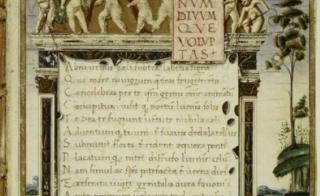 NUM
DIVUM
QUE
VOLVP
TAS
Alma labentia signa
Que mare navigerum que terras frugiferentis
Concelebras per te quoniam genus omne animantum
Concipitur visitque lumina solis
Te Dea te fugiunt venti te nubila celi
Adventumque tuum tibi suavis dedala tellus
Submittit flores tibi rident equora ponti
Placatumque nitet diffuso lumine celum
Nam simul ac species patefacta est verna diei
Et reserata viget genitalis aura favoni